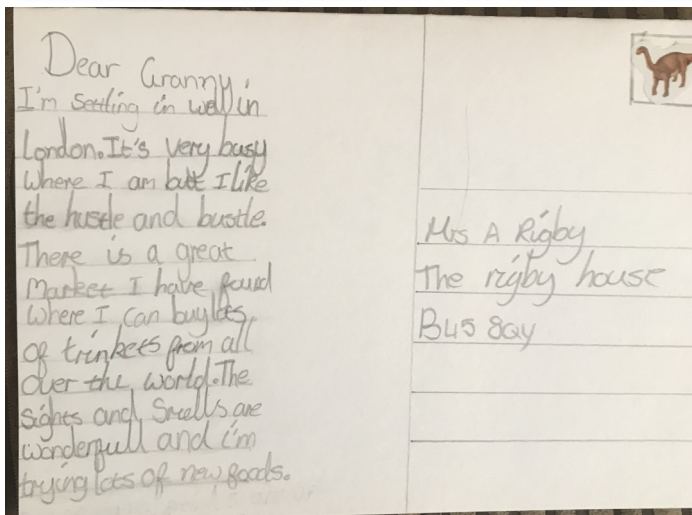 Dear Granny,
I'm settling in well in
London. It's very busy
where I am but I like
the hustle and bustle.
There is a great
Market I have found
where I can buy lots
of trinkets from all
over the world. The
sights and smells are
wonderfull and i'm
trying lots of new foods.
Mrs A Rigby
The rigby house
Bu5 8qy